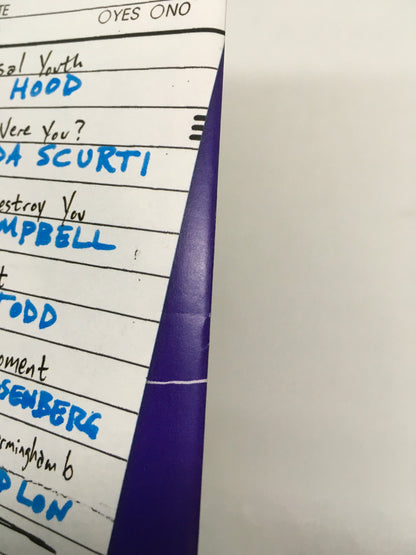 TE OYES ONO
sal Youth
HOOD
Were You?
DA SCURTI
estroy You
MPBELL
t
TODD
oment
SENBERG
rmingham 6
D LON